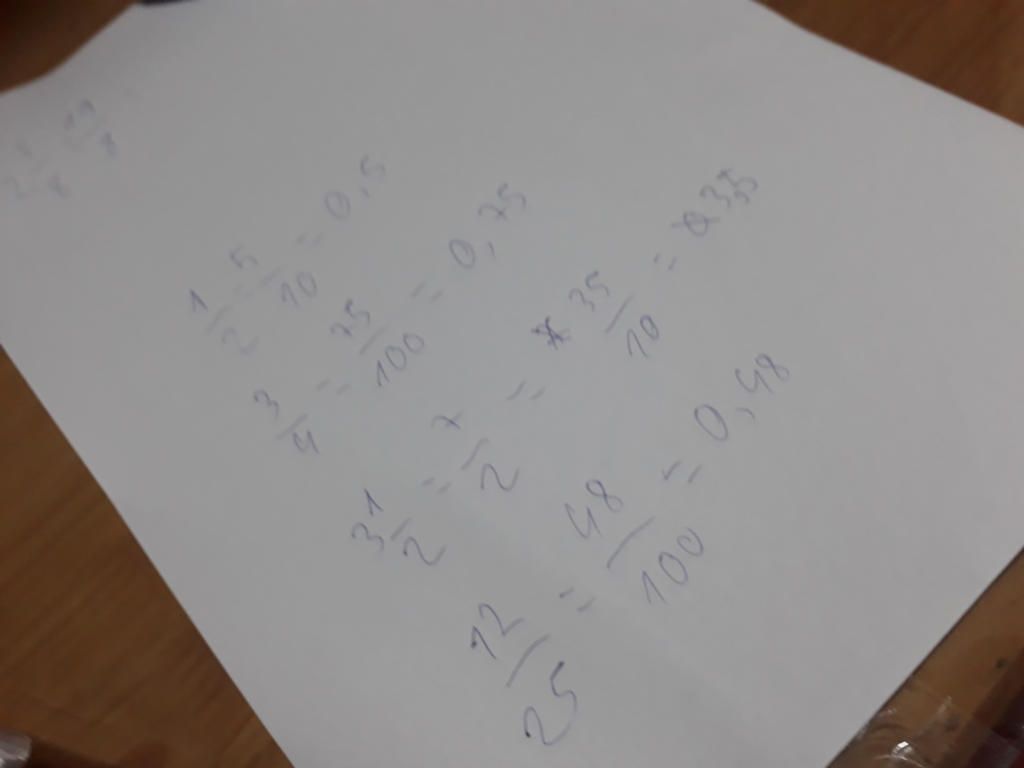 1/2 = 5/10 = 0,5
3/4 = 75/100 = 0,75
3 1/2 = 7/2 = 35/10 = 3,5
12/25 = 48/100 = 0,48